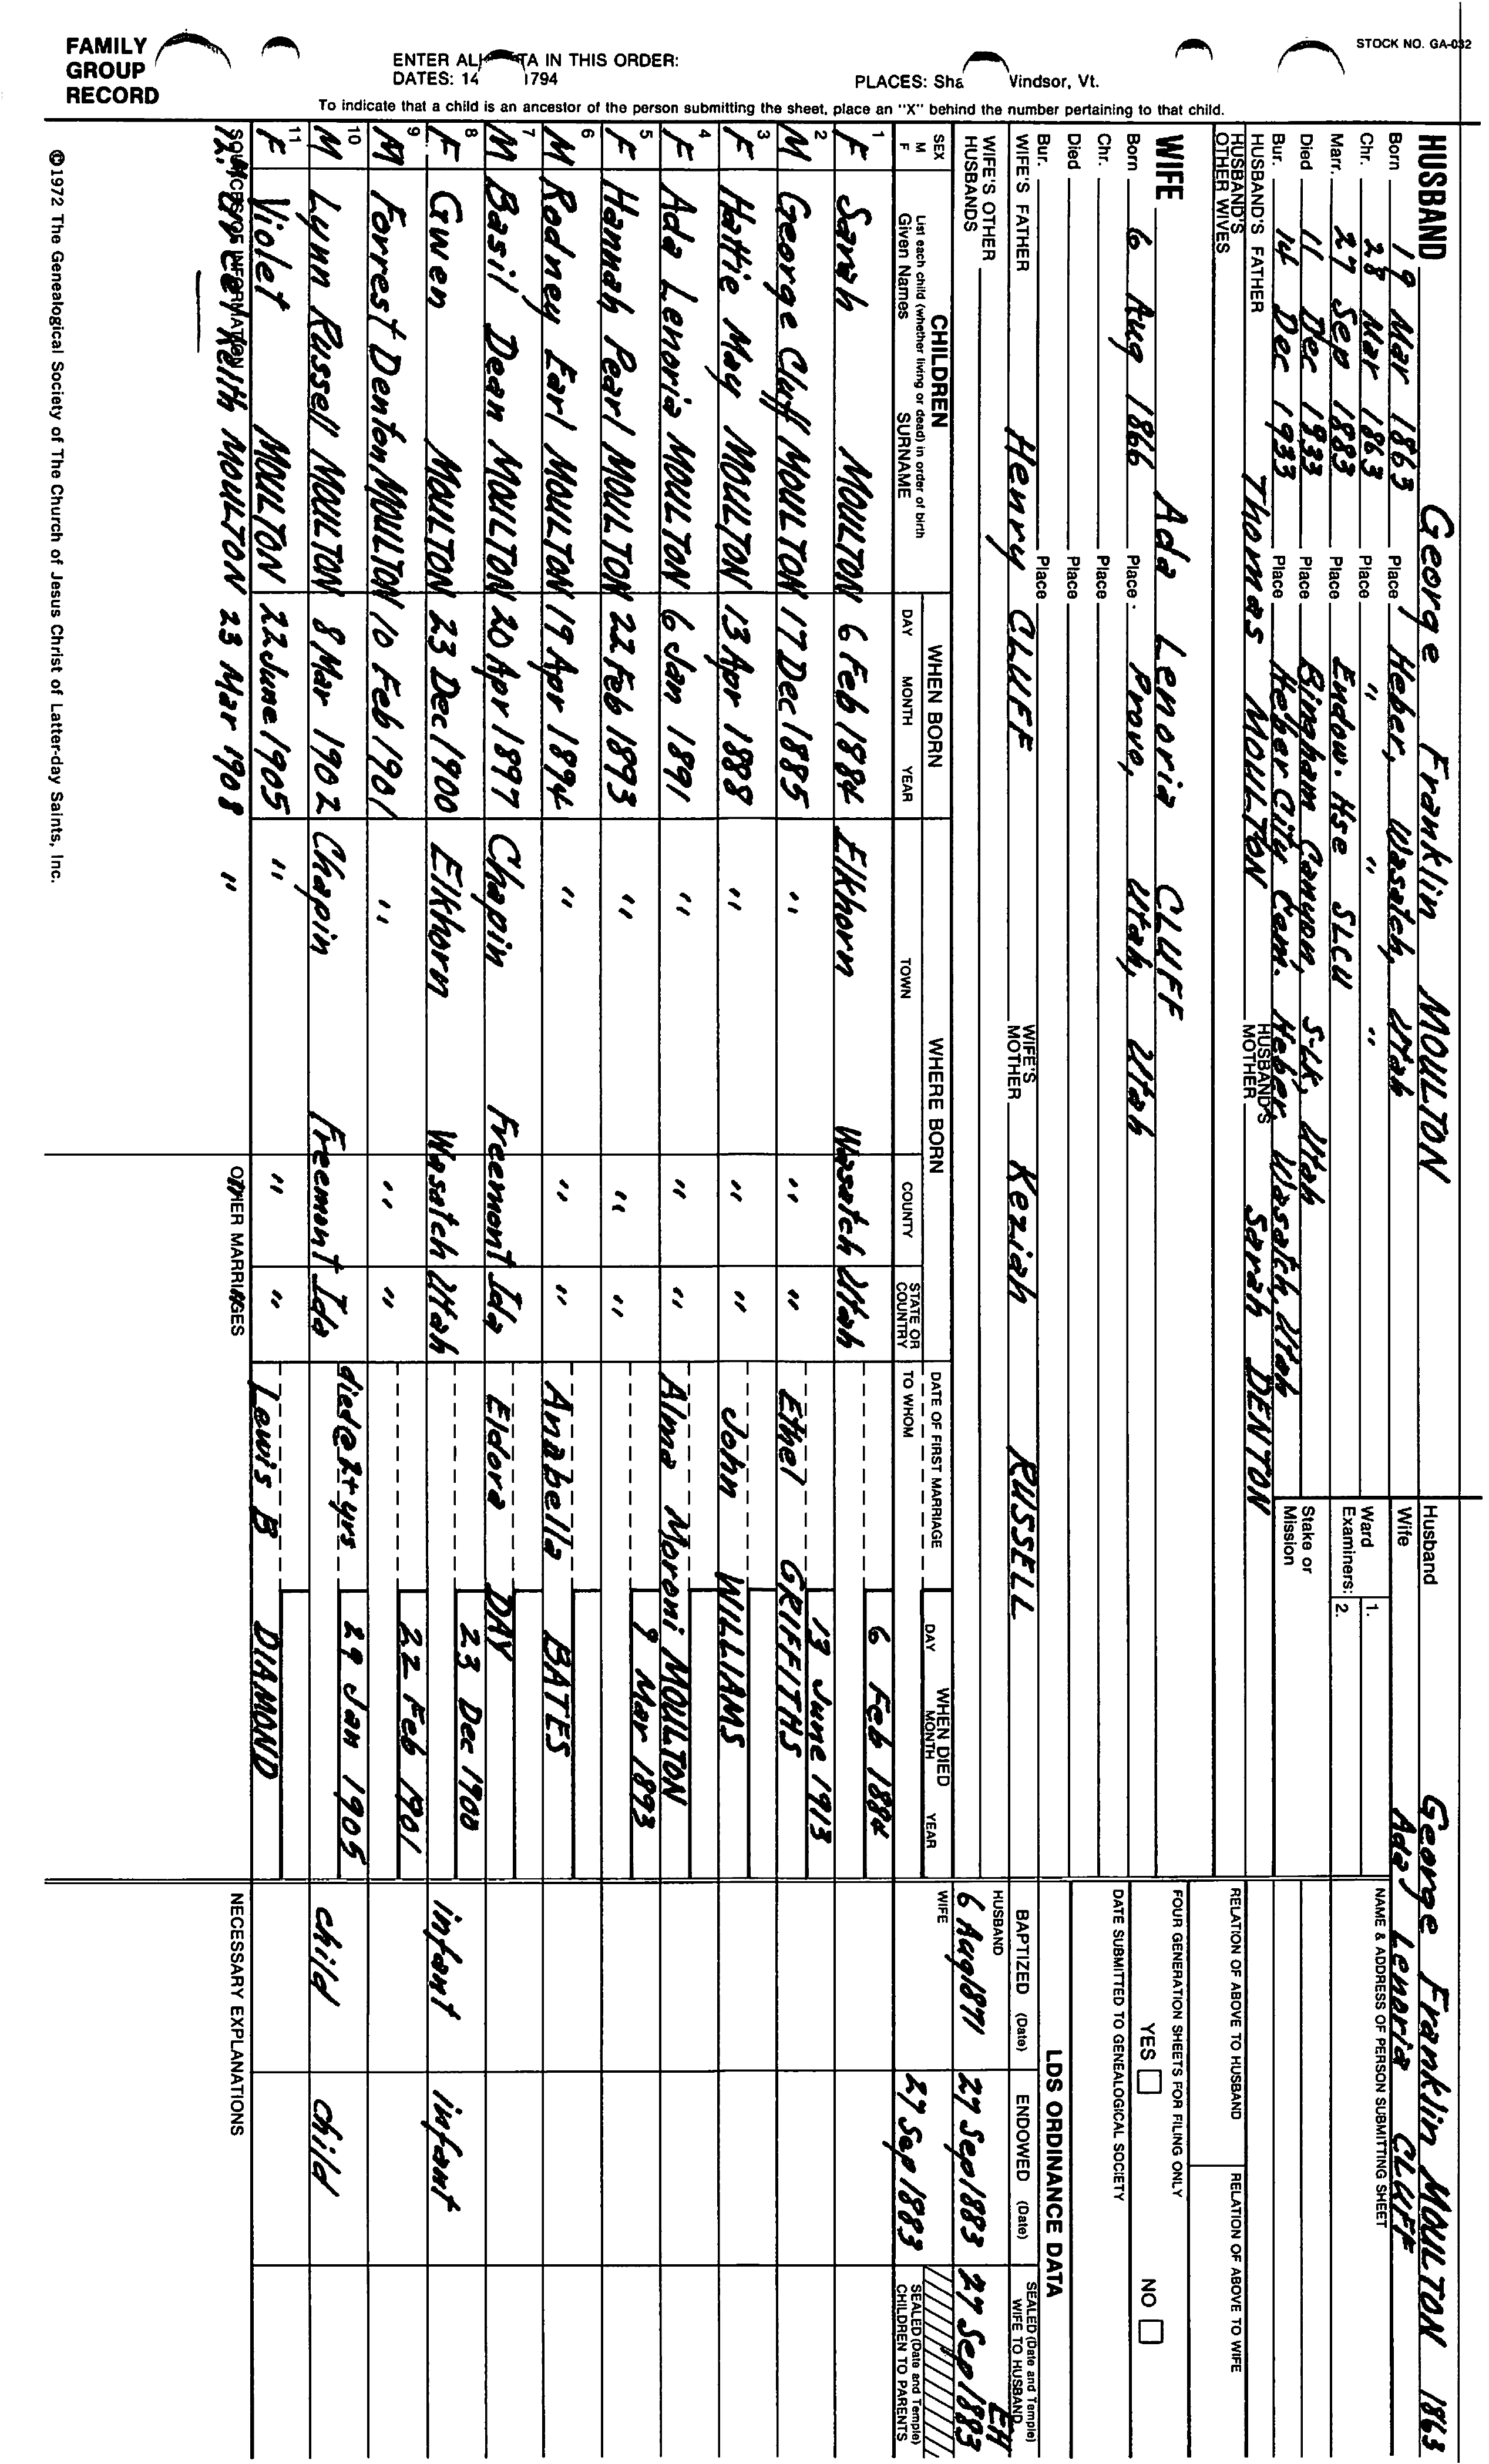 FAMILY GROUP RECORD
ENTER ALL DATA IN THIS ORDER:
DATES: 14 1794
PLACES: Sha Windsor, Vt.
STOCK NO. GA-032
To indicate that a child is an ancestor of the person submitting the sheet, place an "X" behind the number pertaining to that child.
HUSBAND George Franklin MOULTON
Born 19 Mar 1863 Place Heber, Wasatch, Utah
Chr. 28 Mar 1863 Place " " "
Marr. 27 Sep 1883 Place Endow. Hse SLCU
Died 11 Dec 1933 Place Bingham Canyon, S-LK, Utah
Bur. 14 Dec 1933 Place Heber City Cem. Heber, Wasatch, Utah
HUSBAND'S FATHER Thomas MOULTON HUSBAND'S MOTHER Sarah DENTON
HUSBAND'S OTHER WIVES
WIFE Ada Lenoria CLUFF
Born 6 Aug 1866 Place Provo, Utah, Utah
Chr. Place
Died Place
Bur. Place
WIFE'S FATHER Henry CLUFF WIFE'S MOTHER Keziah RUSSELL
WIFE'S OTHER HUSBANDS
Husband George Franklin MOULTON 1863
Wife Ada Lenoria CLUFF
Ward 1.
Examiners: 2.
Stake or Mission
NAME & ADDRESS OF PERSON SUBMITTING SHEET
RELATION OF ABOVE TO HUSBAND RELATION OF ABOVE TO WIFE
FOUR GENERATION SHEETS FOR FILING ONLY
YES NO
DATE SUBMITTED TO GENEALOGICAL SOCIETY
LDS ORDINANCE DATA
BAPTIZED (Date) ENDOWED (Date) SEALED (Date and Temple) WIFE TO HUSBAND
HUSBAND 6 Aug 1871 27 Sep 1883 27 Sep 1883 EH
WIFE 27 Sep 1883
SEALED (Date and Temple) CHILDREN TO PARENTS
SEX M F
CHILDREN
List each child (whether living or dead) in order of birth
Given Names SURNAME
WHEN BORN DAY MONTH YEAR
WHERE BORN TOWN COUNTY STATE OR COUNTRY
DATE OF FIRST MARRIAGE TO WHOM
WHEN DIED DAY MONTH YEAR
1 F Sarah MOULTON 6 Feb 1884 Elkhorn Wasatch Utah 6 Feb 1884
2 M George Cluff MOULTON 17 Dec 1885 " " " Ethel GRIFFITHS 13 June 1913
3 F Hattie May MOULTON 13 Apr 1888 " " " John WILLIAMS
4 F Ada Lenoria MOULTON 6 Jan 1891 " " " Alma Moroni MOULTON
5 F Hannah Pearl MOULTON 22 Feb 1893 " " " 9 Mar 1893
6 M Rodney Earl MOULTON 19 Apr 1894 " " " Anabella BATES
7 M Basil Dean MOULTON 20 Apr 1897 Chapin Freemont Ida Eldora DAY
8 F Gwen MOULTON 23 Dec 1900 Elkhorn Wasatch Utah 23 Dec 1900 infant infant
9 M Forrest Denton MOULTON 10 Feb 1901 " " " 22 Feb 1901
10 M Lynn Russell MOULTON 8 Mar 1902 Chapin Freemont Ida died @ 2+ yrs 29 Jan 1905 child child
11 F Violet MOULTON 22 June 1905 " " " Lewis B DIAMOND
SOURCES OF INFORMATION
12. M Keith MOULTON 23 Mar 1908 "
OTHER MARRIAGES
NECESSARY EXPLANATIONS
©1972 The Genealogical Society of The Church of Jesus Christ of Latter-day Saints, Inc.